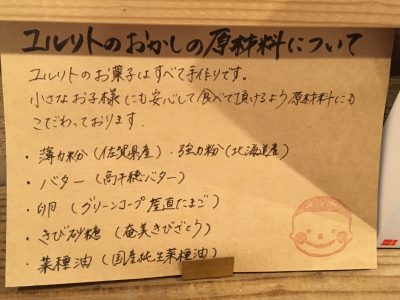 ユルリトのおかしの原材料について
ユルリトのお菓子はすべて手作りです。
小さなお子様にも安心して食べて頂けるよう原材料にも
こだわっております.
・薄力粉(佐賀県産)・強力粉(北海道産)
・バター(高千穂バター)
・卵(グリーンコープ産直たまご)
・きび砂糖(奄美きびざとう)
・菜種油(国産純生菜種油)